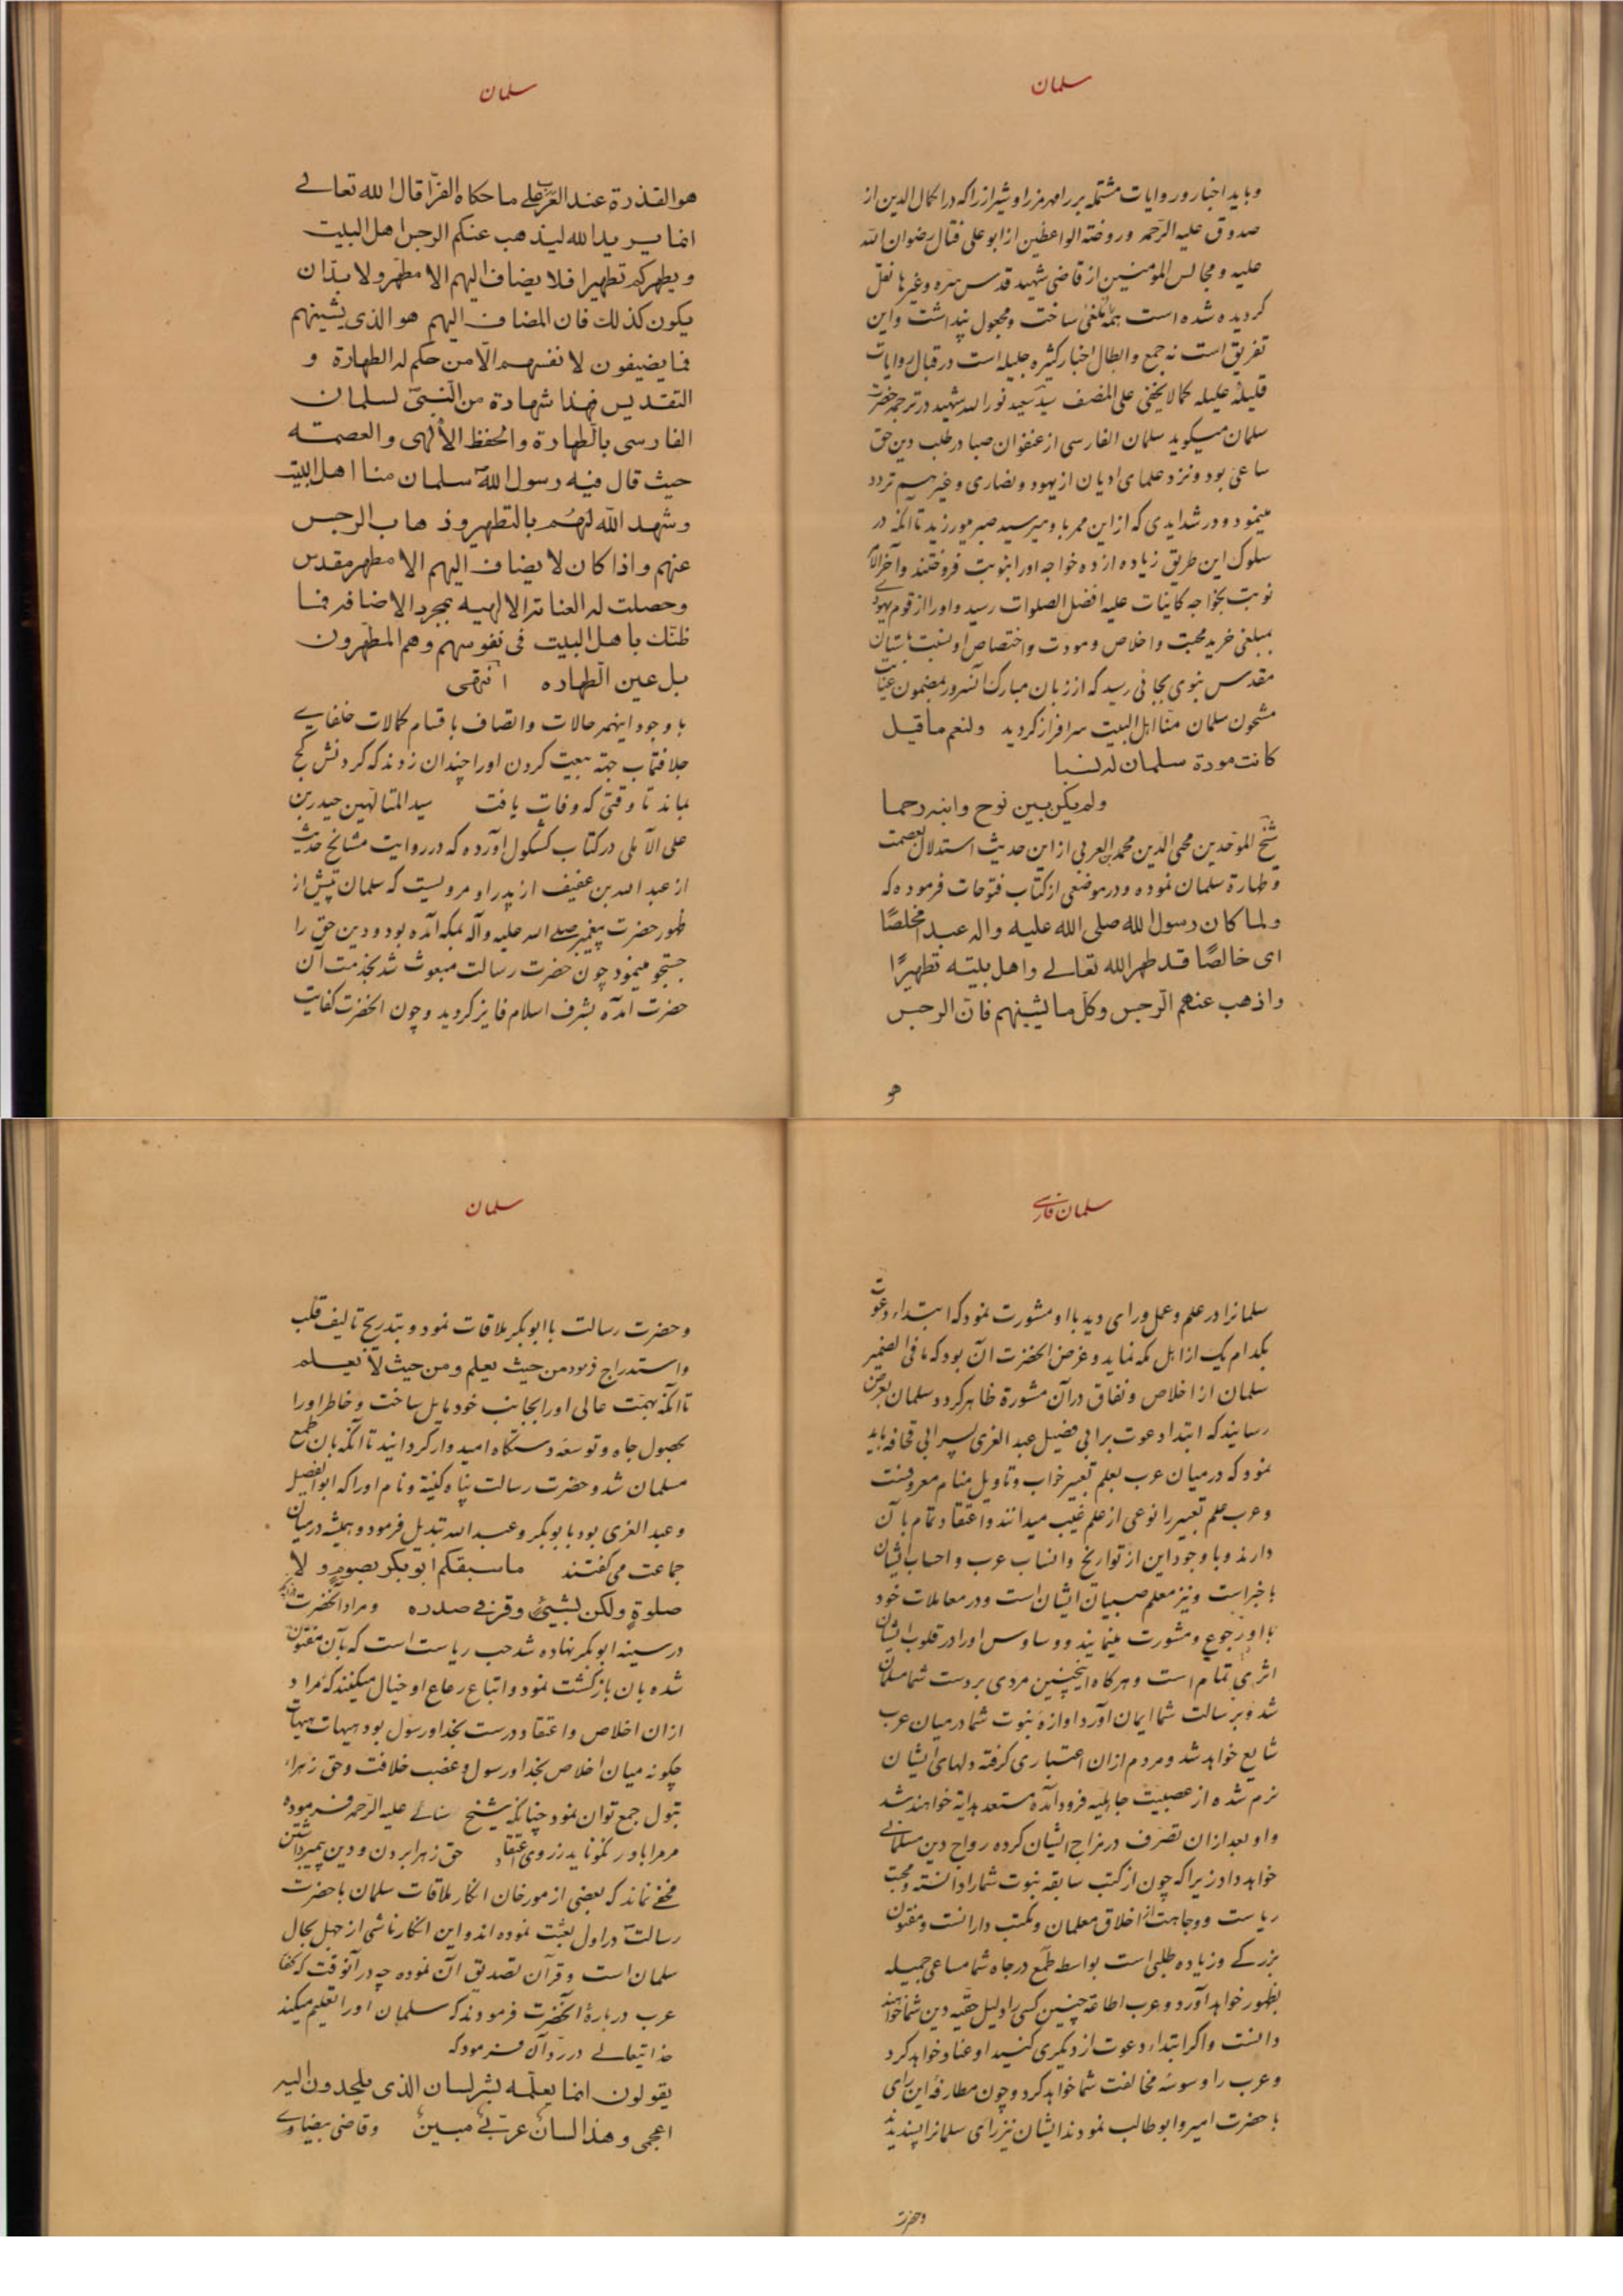 سلمان
و باید اخبار و روایات مشتمله بر رامهرمز را و شیراز را که در اکمال الدین از
صدوق علیه الرحمه و روضة الواعظین از ابو علی فتال رضوان الله
علیه و مجالس المؤمنین از قاضی شهید قدس سره و غیرها نقل
گردیده شده است همه ملغی ساخت و مجعول پنداشت و این
تفریق است نه جمع و ابطال اخبار کثیره جلیله است در قبال روایات
قلیله علیله کما لا یخفی علی المنصف سید سعید نور الله شهید در ترجمه حضرت
سلمان میگوید سلمان الفارسی از عنفوان صبا در طلب دین حق
ساعی بود و نزد علمای ادیان از یهود و نصاری و غیرهم تردد
مینمود و در شدایدی که از این ممر باو میرسید صبر میورزید تا آنکه در
سلوک این طریق زیاده از ده خواجه او را بنوبت فروختند و آخر الامر
نوبت بخواجه کاینات علیه افضل الصلوات رسید و او را از قوم یهود
بمبلغی خرید محبت و اخلاص و مودت و اختصاص او نسبت بآستان
مقدس نبوی بجائی رسید که از زبان مبارک آنسرور بمضمون عنایت
مشحون سلمان منا اهل البیت سرافراز گردید ولنعم ما قیل
کانت مودة سلمان له نسبا
ولم یکن بین نوح وابنه رحما
شیخ الموحدین محیی الدین محمد بن العربی از این حدیث استدلال بعصمت
و طهارة سلمان نموده و در موضعی از کتاب فتوحات فرموده که
ولما کان رسول الله صلی الله علیه واله عبد مخلصًا
ای خالصًا قد طهر الله تعالے واهل بیته تطهیرًا
واذهب عنهم الرجس وکل ما یشینهم فان الرجس
هو
سلمان
هو القذرة عند العرب علی ما حکاه الفرّا قال الله تعالے
انما یرید الله لیذهب عنکم الرجس اهل البیت
ویطهرکم تطهیرا فلا یضاف الیهم الا مطهر ولا بد ان
یکون کذلك فان المضاف الیهم هو الذی یشینهم
فما یضیفون لانفسهم الّا من حکم له الطهارة و
التقدیس فهذا شهادة من النّبیّ لسلمان
الفارسی بالطهارة والحفظ الألهی والعصمته
حیث قال فیه رسول اللّه سلمان منا اهل البیت
وشهد اللّه لهم بالتطهیر وذهاب الرجس
عنهم واذا کان لا یضاف الیهم الا مطهر مقدس
وحصلت له العنایة الالهیه بمجرد الاضافه فما
ظنك باهل البیت فی نفوسهم وهم المطهّرون
بل عین الطهاره انتهی
با وجود اینهمه حالات و اتصاف باقسام کمالات خلفای
جلافتمآب جهة بیعت کردن او را چندان زدند که گردنش کج
بماند تا وقتی که وفات یافت سید المتالهین حیدر بن
علی الآملی در کتاب کشکول آورده که در روایت مشایخ حدیث
از عبد الله بن عفیف از پدر او مرویست که سلمان پیش از
ظهور حضرت پیغمبر صلی الله علیه وآله بمکه آمده بود و دین حق را
جستجو مینمود چون حضرت رسالت مبعوث شد بخدمت آن
حضرت آمده بشرف اسلام فایز گردید و چون آنحضرت کفایت
سلمان فارسے
سلمانرا در علم و عمل و رای دید با او مشورت نمود که ابتداء دعوت
بکدام یک از اهل مکه نماید و غرض آنحضرت آن بود که ما فی الضمیر
سلمان از اخلاص و نفاق در آن مشورة ظاهر گردد سلمان بعرض
رسانید که ابتدا دعوت برابی فضیل عبد العزی پسر ابی قحافه باید
نمود که در میان عرب بعلم تعبیر خواب و تاویل منام معروفست
و عرب علم تعبیر را نوعی از علم غیب میدانند و اعتقاد تمام بآن
دارند و با وجود این از تواریخ و انساب عرب و احساب ایشان
باخبر است و نیز معلم صبیان ایشان است و در معاملات خود
با او رجوع و مشورت مینمایند و وساوس او را در قلوب ایشان
اثری تمام است و هرگاه اینچنین مردی بر دست شما مسلمان
شد و برسالت شما ایمان آورد اوازه نبوت شما در میان عرب
شایع خواهد شد و مردم از ان اعتباری گرفته دلهای ایشان
نرم شده از عصبیت جاهلیه فرود آمده مستعد هدایة خواهند شد
و او بعد از ان تصرف در مزاج ایشان کرده رواج دین مسلمانی
خواهد داد زیرا که چون از کتب سابقه نبوت شما را دانسته و محبت
ریاست و وجاهت از اخلاق معلمان و مکتب دارانست و مفتون
بزرگے و زیاده طلبی است بواسط طمع در جاه شما مساعی جمیله
بظهور خواهد آورد و عرب اطاعة چنین کسی را دلیل حقیه دین شما خواهند
دانست و اگر ابتداء دعوت از دیگری کنید او عناد خواهد کرد
و عرب را وسوسه مخالفت شما خواهد کرد و چون مطارفه این رای
با حضرت امیر و ابوطالب نمودند ایشان نیز رای سلمانرا پسندیدند
وحضرت
سلمان
و حضرت رسالت با ابوبکر ملاقات نمود و بتدریج تالیف قلب
و استدراج فرمود من حیث یعلم و من حیث لا یعلم
تا آنکه بهمّت عالی او را بجانب خود مایل ساخت و خاطر او را
بحصول جاه و توسعه دستگاه امیدوار گردانید تا آنکه بان طمع
مسلمان شد و حضرت رسالت پناه کنیة و نام او را که ابوالفضیل
و عبد العزی بود بابوبکر و عبد الله تبدیل فرمود و همیشه در میان
جماعت می گفتند ما سبقکم ابوبکر بصومٍ و لا
صلوةٍ ولکن بشیئ وقر فی صدره و مراد آنحضرت
در سینه ابوبکر نهاده شد حب ریاست است که بآن مفتون
شده بان بازگشت نمود و اتباع رعاع او خیال میکنند که مراد
از ان اخلاص و اعتقاد درست بخدا و رسول بود هیهات هیهات
چگونه میان اخلاص بخدا و رسول و غضب خلافت و حق زهراء
بتول جمع توان نمود چنانکه شیخ سنائے علیه الرّحمه فرموده
مر مرا باور نکو ناید ز روی اعتقاد حق زهرا بردن و دین پیمبر داشتن
مخفے نماند که بعضی از مورخان انکار ملاقات سلمان با حضرت
رسالت در اول بعثت نموده اند و این انکار ناشی از جهل بحال
سلمان است و قرآن تصدیق آن نموده چه در آنوقت که کفار
عرب دربارهٔ آنحضرت فرمودند که سلمان او را تعلیم میکند
خدایتعالے در رد آن فرمود که
یقولون انما یعلّمه بشر لسان الذی یلحدون الیه
اعجمی وهذا لسانٌ عربیٌ مبینٌ و قاضی بیضاوے